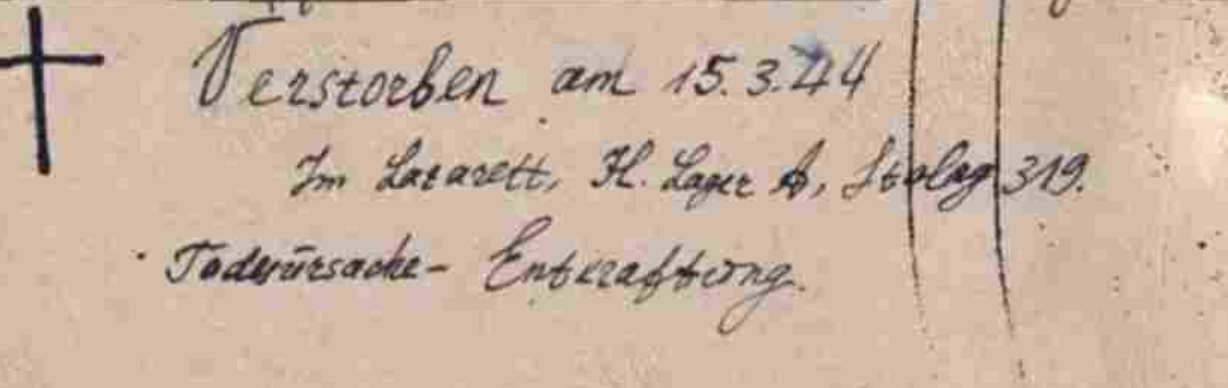 Verstorben am 15.3.44
Im Lazarett, H. Lager A, Stalag 319.
Todesursache - Entkraftung.